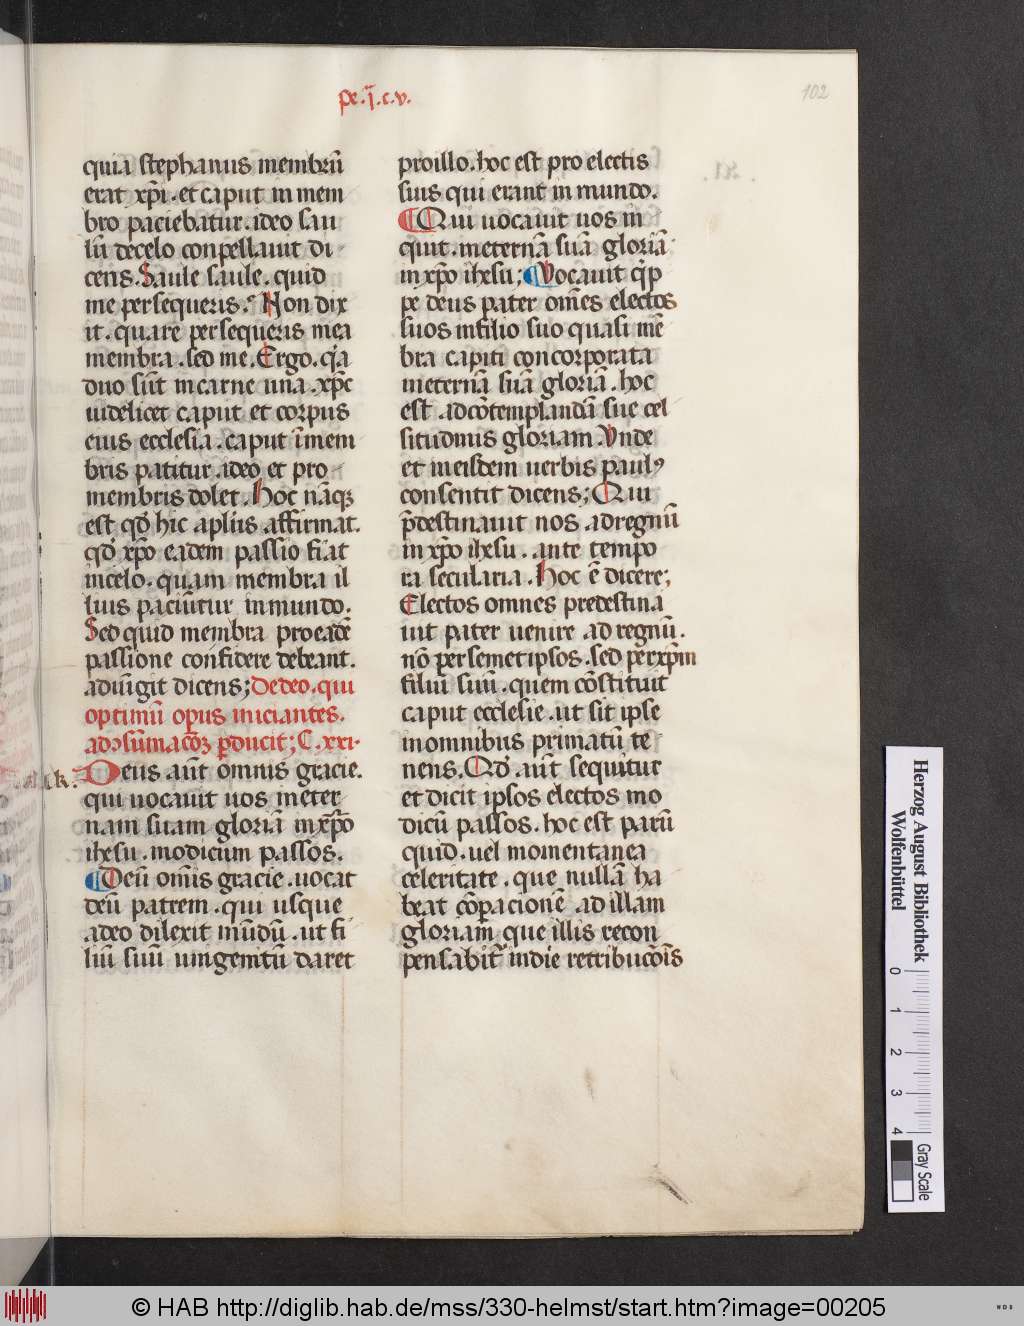 pe.ī.c.v.
102
quia stephanus membrū
erat xp̄i.et caput in mem
bro paciebatur.ideo sau
lū decelo conpellauit di
cens.Saule saule.quid
me persequeris? Non dix
it.quare persequeris mea
membra.sed me.Ergo.q̄a
duo sūt incarne una.xp̄c
uidelicet caput et corpus
eius ecclesia.caput īmem
bris patitur.ideo et pro
membris dolet.Hoc nāqꝫ
est qđ hic aplūs affirmat.
qđ xp̄o eadem passio fiat
incelo.quam membra il
luis paciūtur inmundo.
Sed quid membra proeadē
passione confidere debeant.
adiūgit dicens;Dedeo.qui
optimū opus iniciantes.
adɔsūmacōꝫ ꝑducit;C.xxi.
Deus aūt omnis gracie.
qui uocauit uos ineter
nam suam gloriā inxp̄o
ihesu.modicum passos.
Deū om̄is gracie.uocat
deū patrem.qui usque
adeo dilexit mūdū.ut fi
liū suū unigenitū daret
proillo.hoc est pro electis
suis qui erant in mundo.
Qui uocauit uos in
quit.ineternā suā gloriā
inxp̄o ihesu;Vocauit q̄p
pe deus pater om̄es electos
suos infilio suo quasi mē
bra capiti concorporata
ineternā suā gloriā.hoc
est.adcōtemplandā sue cel
situdinis gloriam.Vnde
et ineisdem uerbis paulꝰ
consentit dicens;Qui
p̄destinauit nos adregnū
in xp̄o ihesu.ante tempo
ra secularia.Hoc ē dicere;
Electos omnes predestina
uit pater uenire ad regnū.
nō persemetipsos.sed perxp̄m
filiū suū.quem cōstituit
caput ecclesie.ut sit ipse
inomnibus primatū te
nens.Qđ aūt sequitur
et dicit ipsos electos mo
dicū passos.hoc est parū
quid.uel momentanea
celeritate.que nullā ha
beat cōpacionē ad illam
gloriam que illis recon
pensabit̄ indie retribucōīs
Herzog August Bibliothek
Wolfenbüttel
0 1 2 3 4
Gray Scale
© HAB http://diglib.hab.de/mss/330-helmst/start.htm?image=00205